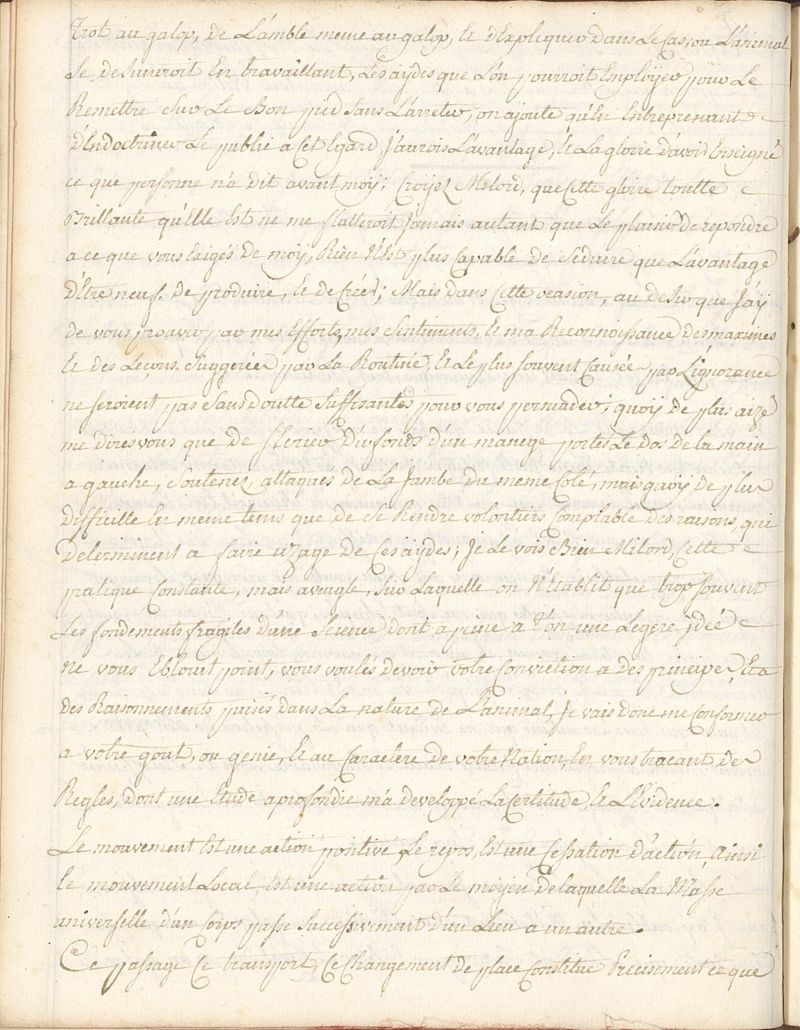 Trot au galop, de L'amble meme au galop, Et d'Expliquer dans Le Cas, ou L'animal
Se desuniroit En travaillant, Les aÿdes que L'on pourroit Emploÿer pour Le
Remettre Sur Le Bon pied Sans L'arreter, on ajoute qu'En Entreprenant
d'Endoctriner Le publie a Cet Egard, J'aurois L'avantage, Et La gloire d'avoir Enseigné
ce que personne n'a dit avant moÿ; Croÿez Milord, que Cette gloire toutte
Brillante qu'Elle Est ne me flatteroit Jamais autant que Le plaisir de repondre
a ce que vous Exigés de moÿ, Rien N'Est plus Capable de Séduire que L'avantage
d'Etre neuf. de produire, Et de Créer; Mais dans Cette ocasion, au desir que J'aÿ
de vous prouver par mes Efforts, mes Sentiments, Et ma Reconnoissance des maximes
Et des Leçons Suggerées par La Routine, Et Le plus Souvent Causées par L'ignorance
ne Seroient pas Sans doutte Suffisantes pour vous persuader; quoÿ de plus aizé
me dirés vous que de S'Ecrier du fonds d'un manege portés Le dos de La main
a gauche, Soutenez, attaqués de La Jambe du meme Coté, mais quoÿ de plus
difficille En meme tems que de Se Rendre volontiers Comptable des raisons, qui
determinent a faire uzage de Ces aÿdes; Je Le vois Bien Milord, Cette
pratique Constante, mais aveugle, Sur Laquelle on N'Etablit que trop Souvent
Les fondements fragiles d'une Science dont a peine a t'on une Legere idée
ne vous Eblouit point, vous voulés devoir votre Conviction a des principes, Et a
des Raisonnements puisés dans La nature de L'animal, Je vais donc me Conformer
a votre gout, ou genie, Et au Caractere de votre Nation, En vous tracant des
Regles, dont une Etude aprofondie m'a developpé La Certitude, Et L'Evidence.
Le mouvement Est une action positive, Le repos, Est une Cessation d'action, ainsi
le mouvement Local, Est une action par Le moÿen de laquelle La Masse
universelle d'un Corps passe Successivement d'un Lieu a un autre.
Ce passage Ce transport, Ce Changement de place Constitue Precisement ce que